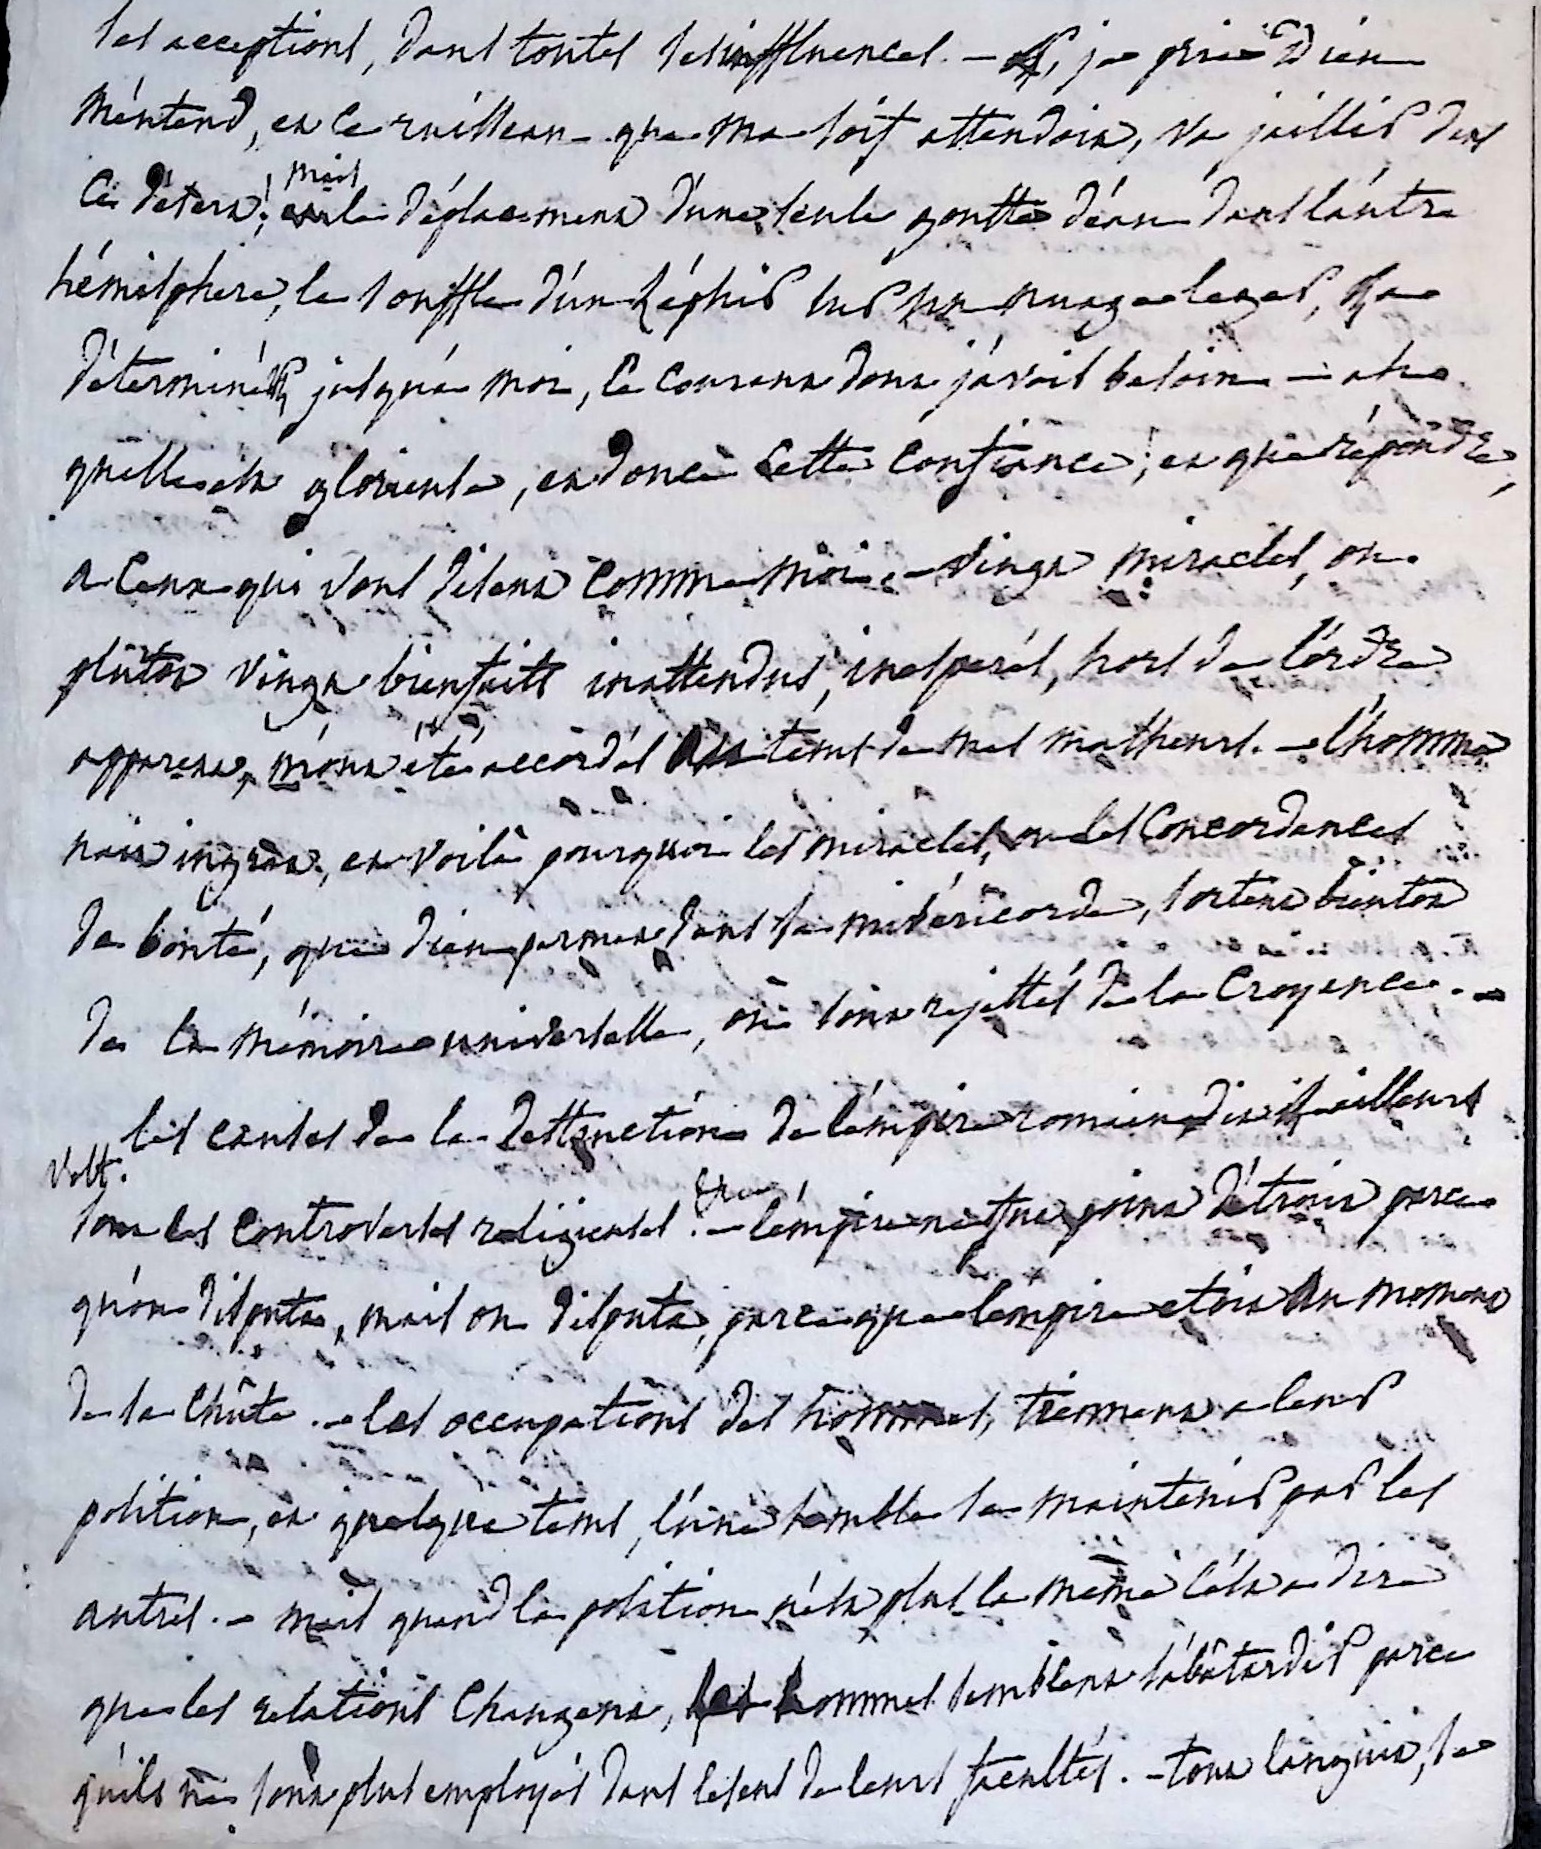 ses acceptions, dans toutes ses influences. – si, je prie Dieu
m'entend, et ce ruisseau que ma soif attendoit, va jaillir dans
ce désert; mais le déplacement d'une seule goutte d'eau dans l'autre
hémisphere, le souffle d'un Zéphir sur un nuage leger, a
déterminés jusqu'a moi, le courant dont j'avois besoin – ah
qu'elle est glorieuse, et douce cette confiance; et que répondre,
a ceux qui vont disant comme moi. – vingt miracles, ou
plutot vingt bienfaits inattendus, inesperés, hors de l'ordre
apparent, m'ont été accordés au tems de mes malheurs. – l'homme
nait ingrat, et voila pourquoi les miracles, ou les concordances
de bonté, que dieu permet dans sa miséricorde, sortent bientot
de la mémoire universelle, ou sont rejettés de la croyence. –
les causes de la destruction de l'empire romain disoit ailleurs
Volt.
sont les controverses religieuses. – l'empire ne fut point détruit parce
qu'on disputa, mais on disputa, parce que l'empire etoit au moment
de sa chûte. – les occupations des hommes, tiennent a leur
position, et quelque tems, l'une semble se maintenir par les
autres. – mais quand la position n'est plus la même c'est a dire
que les relations changent, les hommes semblent s'abâtardir parce
qu'ils ne sont plus employés dans le sens de leurs facultés. – tout languit, se